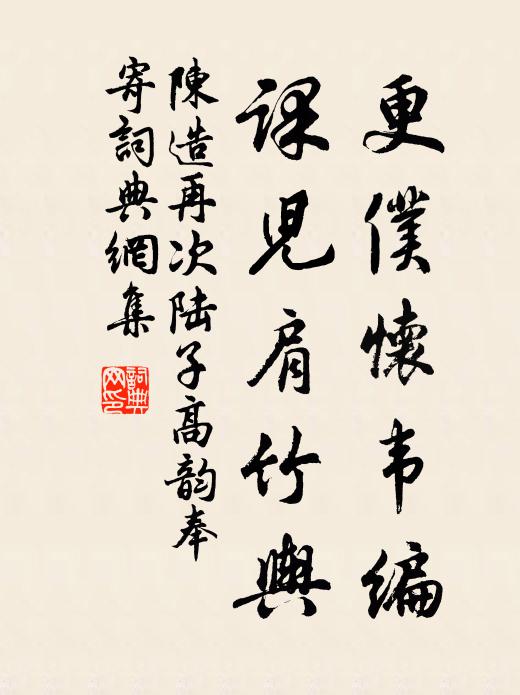 更僕懷韦编
課児肩竹輿
陳造再次陆子高韵奉
寄詞典網集
詞典
网印